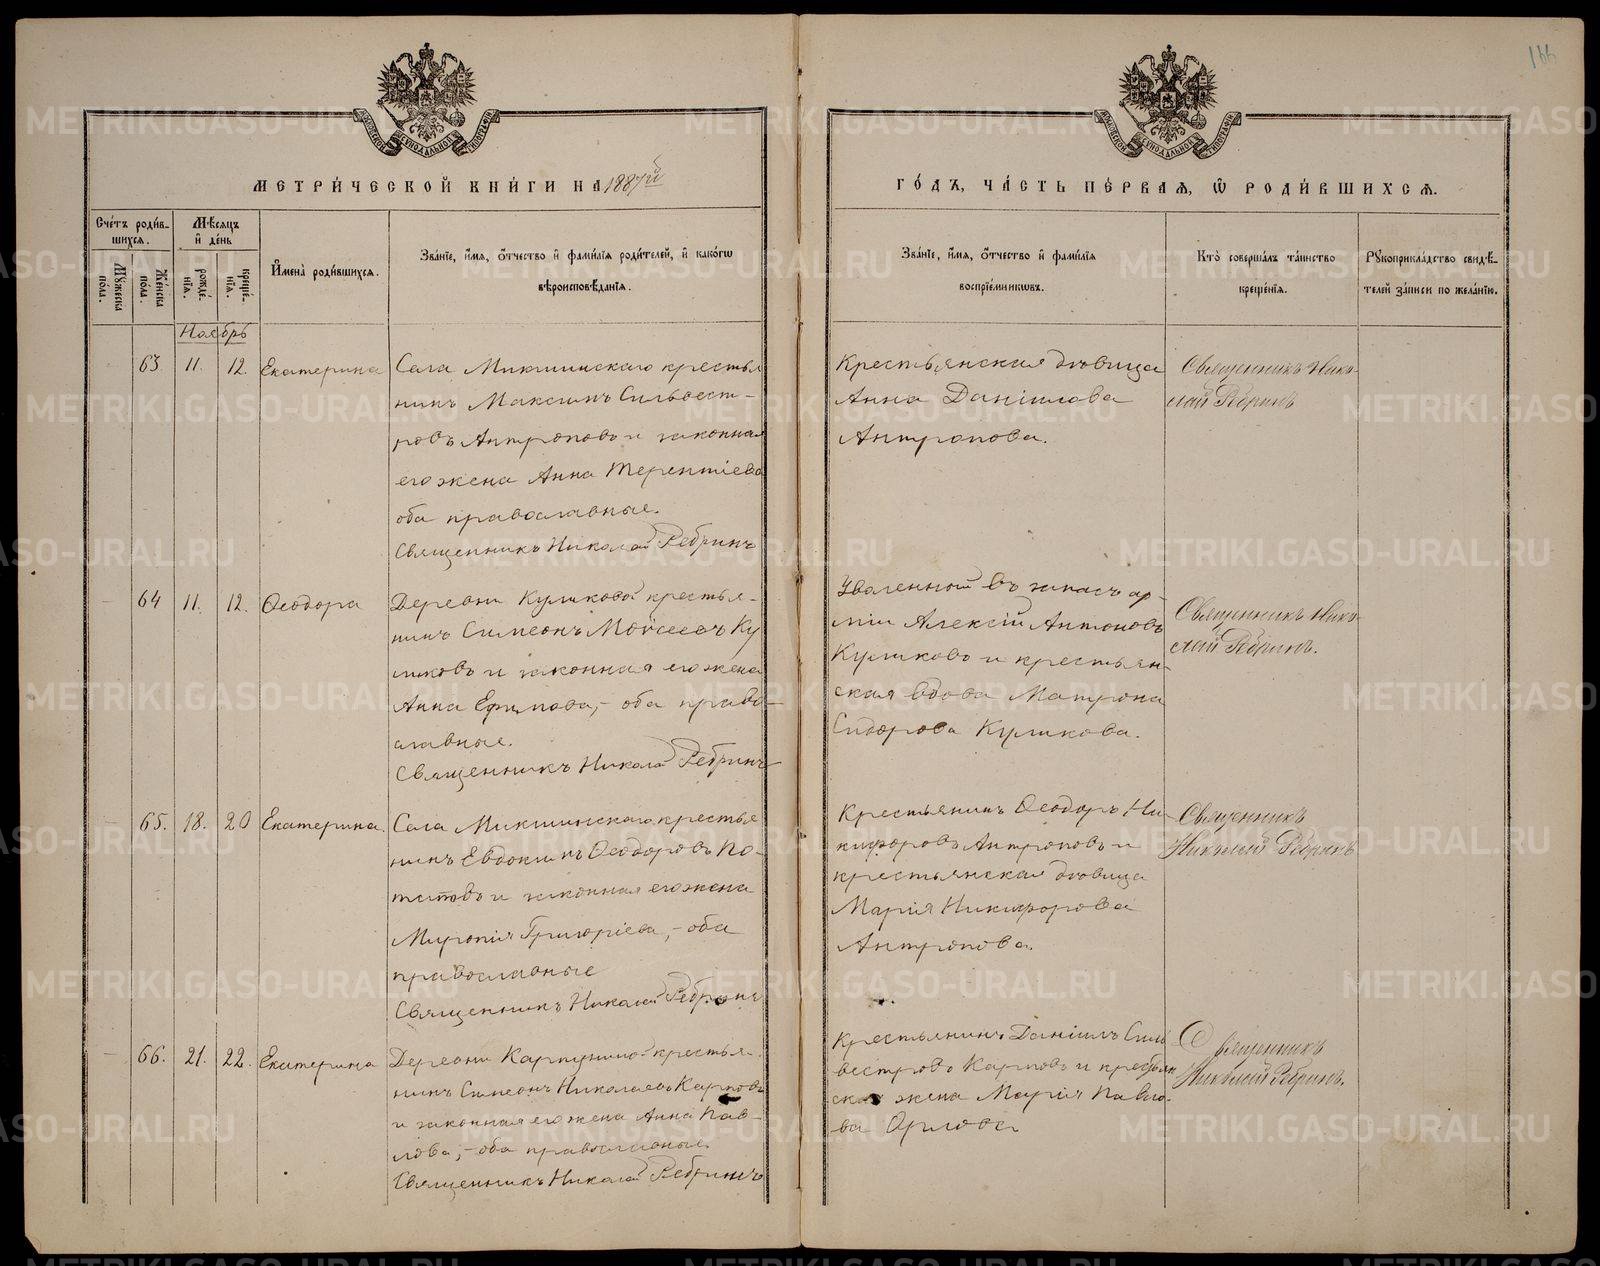 166
МЕТРИ́ЧЕСКОЙ КНИ́ГИ НА 1887й
ГО́ДЪ, ЧА́СТЬ ПЕ́РВАЯ, Ѡ РОДИ́ВШИХСѦ.
Сче́тъ роди́в-
шихсѧ.
Мꙋжеска по́ла.
Же́нска по́ла.
Мѣ́сѧцъ
и҆ де́нь
рожде́-
нїѧ.
креще́-
нїѧ.
И҆мена̀ роди́вшихсѧ.
Зва́нїе, и҆́мѧ, ѻ҆́тчество и҆ фами́лїѧ роди́телей, и҆ како́гѡ
вѣроисповѣ́данїѧ.
Зва́нїе, и҆́мѧ, ѻ҆́тчество и҆ фами́лїѧ
воспрїе́мникѡвъ.
Кто̀ соверша́лъ та́инство
креще́нїѧ.
Рꙋкоприкла́дство свидѣ́-
телей за́писи по жела́нїю.
Ноябрь
63 11. 12. Екатерина
Села Микшинскаго крестья
нинъ Максимъ Сильвест-
ровъ Антроповъ и законная
его жена Анна Терентіева
оба православные.
Священникъ Николай Ребринъ
Крестьянская дѣвица
Анна Даніилова
Антропова.
Священникъ Нико-
лай Ребринъ
64 11. 12. Ѳеодора
Деревни Куликовой крестья-
нинъ Симеонъ Моѵсеевъ Ку
ликовъ и законная его жена
Анна Ефимова,- оба право-
славные.
Священникъ Николай Ребринъ
Уволенной въ запасъ ар-
міи Алексій Антоновъ
Куликовъ и крестьян-
ская вдова Матрона
Сидорова Куликова.
Священникъ Нико-
лай Ребринъ.
65. 18. 20 Екатерина.
Села Микшинскаго крестья
нинъ Евдокимъ Ѳеодоровъ По-
татовъ и законная его жена
Миропія Григоріева,- оба
православные
Священникъ Николай Ребринъ
Крестьянинъ Ѳеодоръ Ни-
кифоровъ Антроповъ и
крестьянская дѣвица
Марія Никифорова
Антропова.
Священникъ
Николай Ребринъ
66. 21. 22. Екатерина
Деревни Карпуниной крестья-
нинъ Симеонъ Николаевъ Карповъ
и законная его жена Анна Пав-
лова,- оба православные.
Священникъ Николай Ребринъ
Крестьянинъ Даніилъ Силь
вестровъ Карповъ и крестьян
ская жена Марія Павло-
ва Орлова
Священникъ
Николай Ребринъ.
METRIKI.GASO-URAL.RU